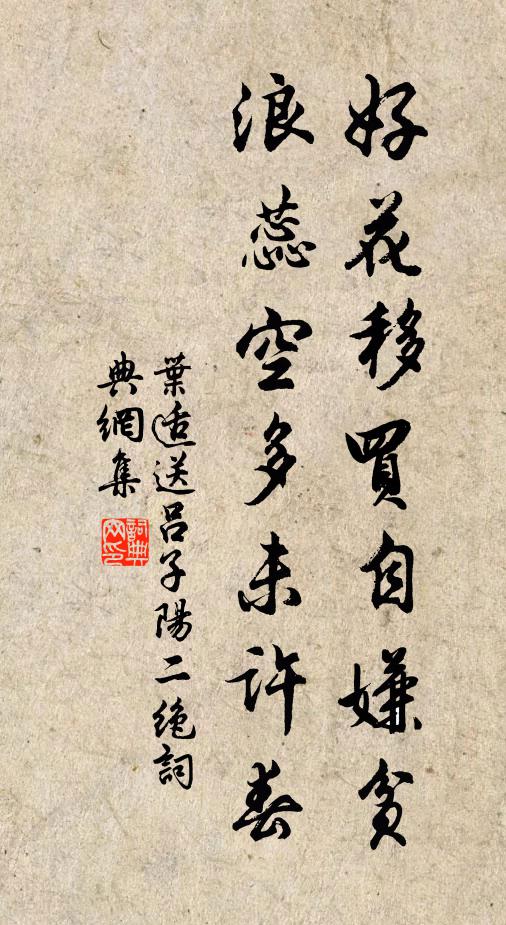 好花移買自嫌貧
浪蕊空多未許春
葉適送呂子陽二絶詞
典網集
詞典
网印